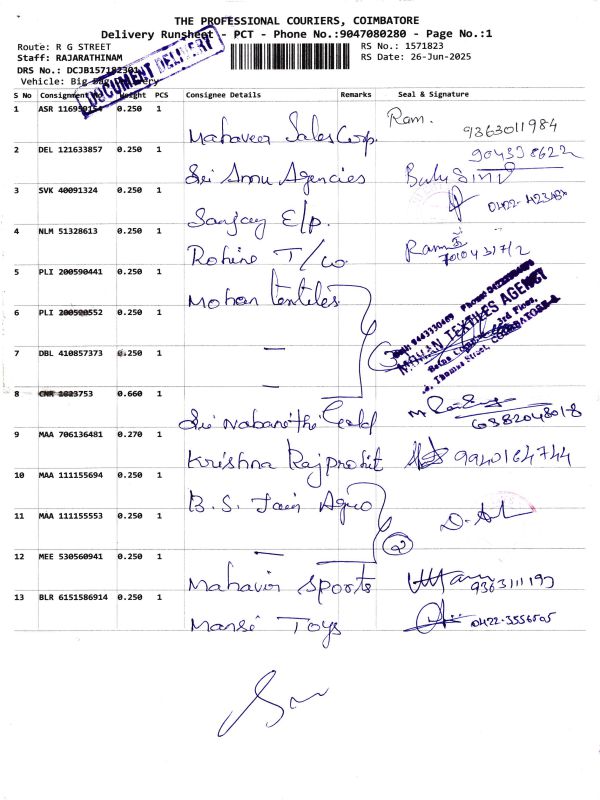 THE PROFESSIONAL COURIERS, COIMBATORE
Delivery Runsheet - PCT - Phone No.:9047080280 - Page No.:1
Route: R G STREET
RS No.: 1571823
Staff: RAJARATHINAM
RS Date: 26-Jun-2025
DRS No.: DCJB157182301
Vehicle: Big Bag
DOCUMENT DELIVERY
S No Consignment No Weight PCS Consignee Details Remarks Seal & Signature
1 ASR 0.250 1 Mahaveer Sales Corp. Ram. 9363011984
2 DEL 121633857 0.250 1 Sri Annu Agencies
3 SVK 40091324 0.250 1 Sanjay E/p. 0422-
4 NLM 51328613 0.250 1 Rohine T/co
5 PLI 200590441 0.250 1 Mohan textiles
MOHAN TEXTILES AGENCY
3rd Floor,
Thomas Street, COIMBATORE
6 PLI 0.250 1 —
7 DBL 410857373 0.250 1 —
8 0.660 1 Sri Nabaneethi Gold 6382048018
9 MAA 706136481 0.270 1 Krishna Rajprohit 9940164744
10 MAA 111155694 0.250 1 B.S. Jain Agno
11 MAA 111155553 0.250 1 — 2
12 MEE 530560941 0.250 1 Mahavir Sports 9363111193
13 BLR 6151586914 0.250 1 Mansi Toys 0422-3556505